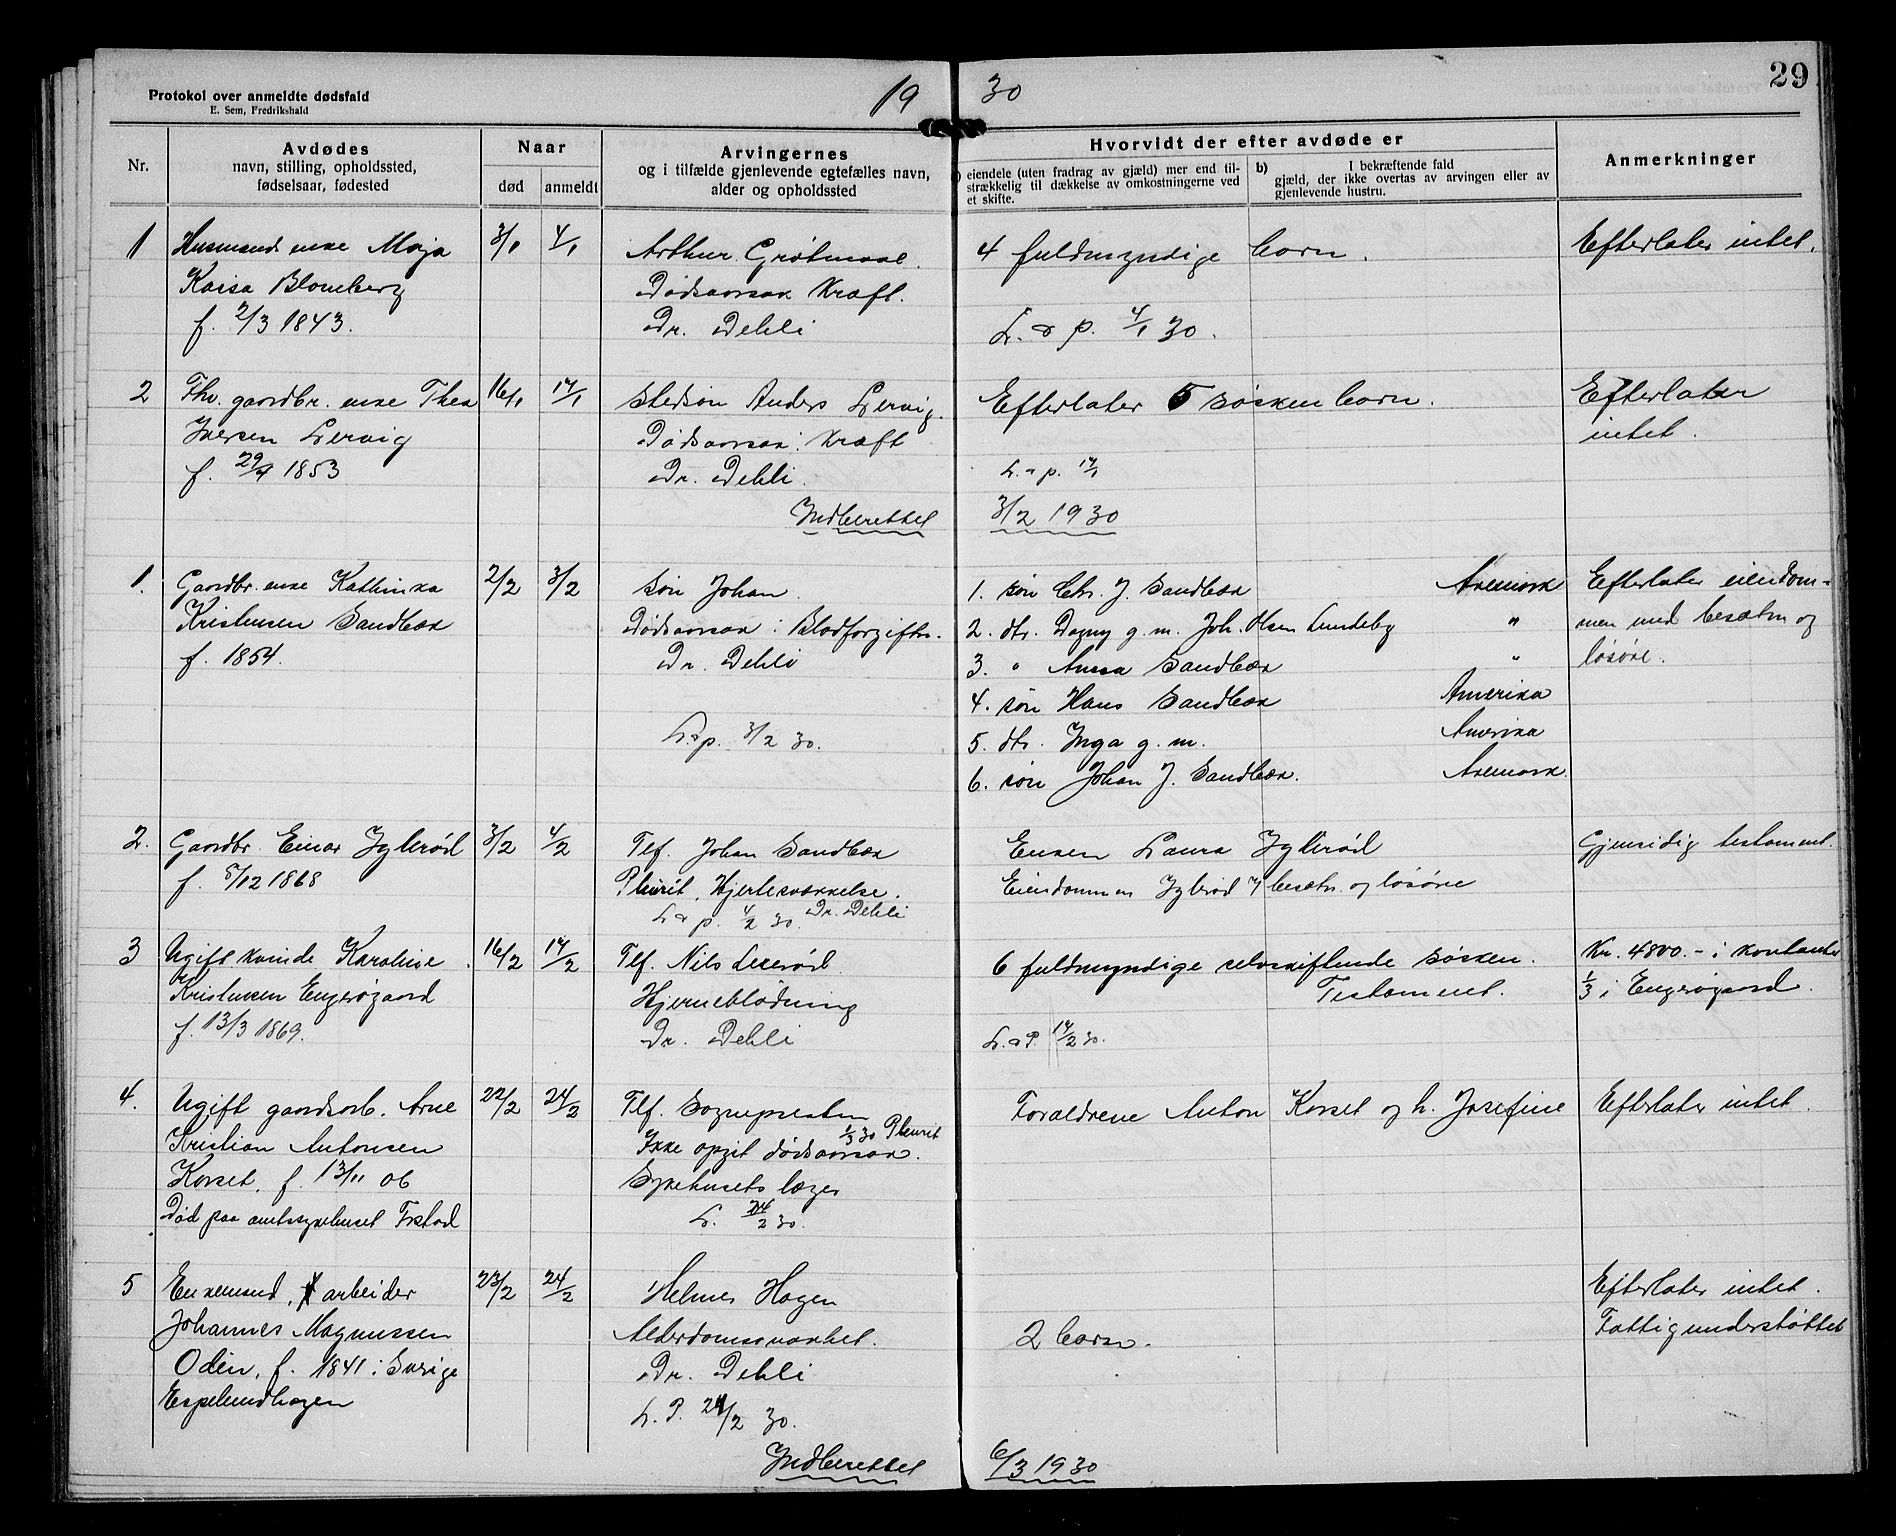 19 30
29
Protokol over anmeldte dødsfald
E. Sem, Fredrikshald
Nr.
Avdødes
navn, stilling, opholdssted,
fødselsaar, fødested
Naar
død anmeldt
Arvingernes
og i tilfælde gjenlevende egtefælles navn,
alder og opholdssted
Hvorvidt der efter avdøde er
eiendele (uten fradrag av gjæld) mer end til-
strækkelig til dækkelse av omkostningerne ved
et skifte.
b) I bekræftende fald
gjæld, der ikke overtas av arvingen eller av
gjenlevende hustru.
Anmerkninger
1 Husmands enke Maja 3/1 4/1
Kaisa Blomberg
f. 2/3 1843.
Arthur
Dødsaarsak Kræft.
Dr. Dehli
4 fuldmyndige barn.
L. & p. 4/1 30.
Efterlater intet.
2 Fhv. gaardbr. enke Thea 16/1 17/1
Iversen Lervig
f. 29/9 1853
Stedsøn Anders Lervig.
Dødsaarsak: Kræft
Dr. Dehli.
Indberettet
Efterlater 5 søskenbarn.
L. & p. 17/1
3/2 1930
Efterlater
intet.
1. Gaardbr. enke Kathinka 2/2 3/2
Kristensen Sandbæk
f. 1854.
Søn Johan.
Dødsaarsak: Blodforgiftn.
Dr. Dehli
L. & p. 3/2 30.
1. søn Chr. J. Sandbæk Aremark
2. dtr. Dagny g. m. Joh. Olsen Lundeby "
3. " Anna Sandbæk "
4. søn Hans Sandbæk Amerika
5. dtr. Inga g. m. Amerika
6. søn Johan J. Sandbæk. Aremark.
Efterlater eiendom-
men med besætn og
løsøre.
2. Gaardbr. Einar Iglerød 3/2 4/2
f. 5/12 1868
Tlf. Johan Sandbæk
Pleurit, Hjertesvækkelse.
L & p. 4/2 30. Dr. Dehli
Enken Laura Iglerød
Eiendommen Iglerød besætn. og løsøre
Gjensidig testament.
3 Ugift kvinde Karoline 16/2 17/2
Kristensen Engerøgaard
f. 13/3 1869.
Tlf. Nils
Hjerneblødning
Dr. Dehli
6 fuldmyndige selvskiftende søsken.
Testament.
L. & P. 17/2 30.
Kr. 4800.- i kontanter
1/3 i Engerøgaard.
4. Ugift gaardsarb. Arne 22/2 24/2
Kristian Antonsen
Korset, f. 13/11 06
Død paa amtssykehuset Fr.stad
Tlf. Sognepresten
1/3 30 Pleurit
Ikke opgit dødsaarsak.
Sykehusets læger
L. 24/2 30.
Forældrene Anton Korset og h. Josefine
Efterlater intet.
5 Enkemand, arbeider 23/2 24/2
Johannes Magnussen
Odén, f. 1841 i Sverige
Espelundhagen
Helmer Hagen
Alderdomssvakhet.
Dr. Dehli
L. P. 24/2 30.
Indberettet
2 barn.
6/3 1930
Efterlater intet.
Fattigunderstøttet